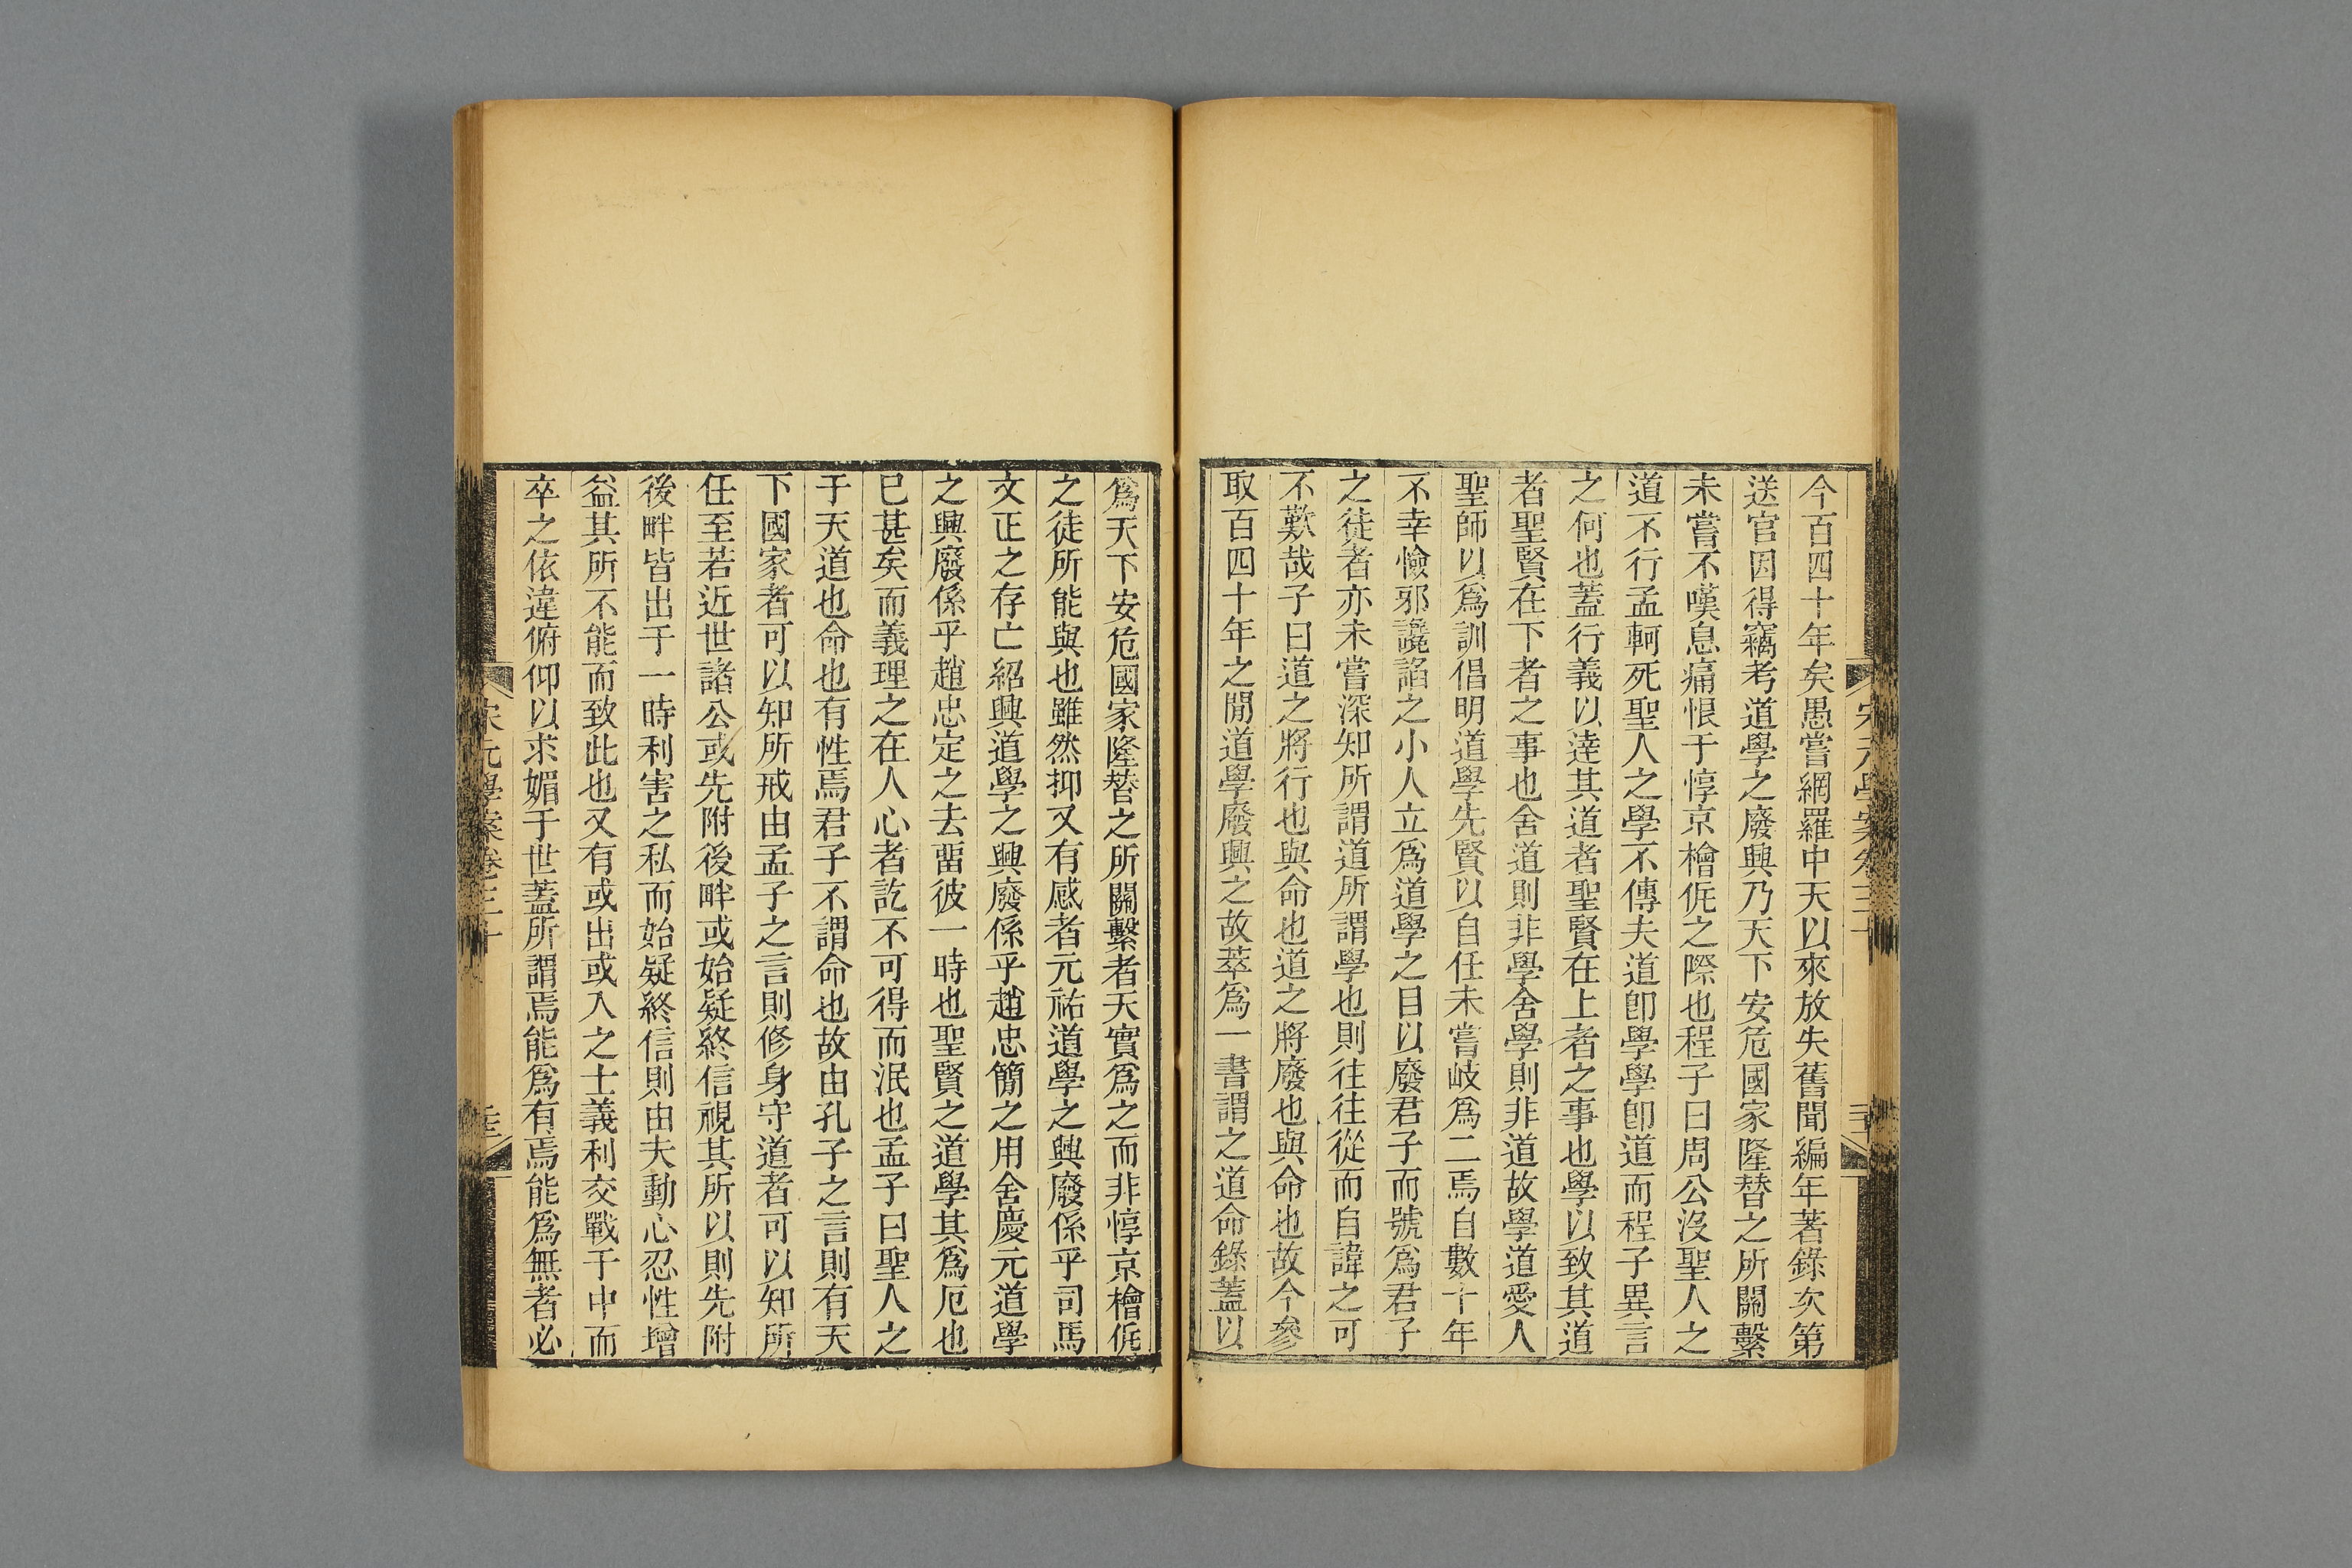 今百四十年矣愚嘗網羅中天以來放失舊聞編年著錄次第
送官因得竊考道學之廢興乃天下安危國家隆替之所關繫
未嘗不嘆息痛恨于惇京檜侂之際也程子曰周公沒聖人之
道不行孟軻死聖人之學不傳夫道卽學學卽道而程子異言
之何也蓋行義以達其道者聖賢在上者之事也學以致其道
者聖賢在下者之事也舍道則非學舍學則非道故學道愛人
聖師以爲訓倡明道學先賢以自任未嘗岐爲二焉自數十年
不幸憸邪讒諂之小人立爲道學之目以廢君子而號爲君子
之徒者亦未嘗深知所謂道所謂學也則往往從而自諱之可
不歎哉子曰道之將行也與命也道之將廢也與命也故今參
取百四十年之閒道學廢興之故萃爲一書謂之道命錄蓋以
爲天下安危國家隆替之所關繫者天實爲之而非惇京檜侂
之徒所能與也雖然抑又有感者元祐道學之興廢係乎司馬
文正之存亡紹興道學之興廢係乎趙忠簡之用舍慶元道學
之興廢係乎趙忠定之去畱彼一時也聖賢之道學其爲厄也
已甚矣而義理之在人心者訖不可得而泯也孟子曰聖人之
于天道也命也有性焉君子不謂命也故由孔子之言則有天
下國家者可以知所戒由孟子之言則修身守道者可以知所
任至若近世諸公或先附後畔或始疑終信視其所以則先附
後畔皆出于一時利害之私而始疑終信則由夫動心忍性增
益其所不能而致此也又有或出或入之士義利交戰于中而
卒之依違俯仰以求媚于世蓋所謂焉能爲有焉能爲無者必
宋元學案卷三十